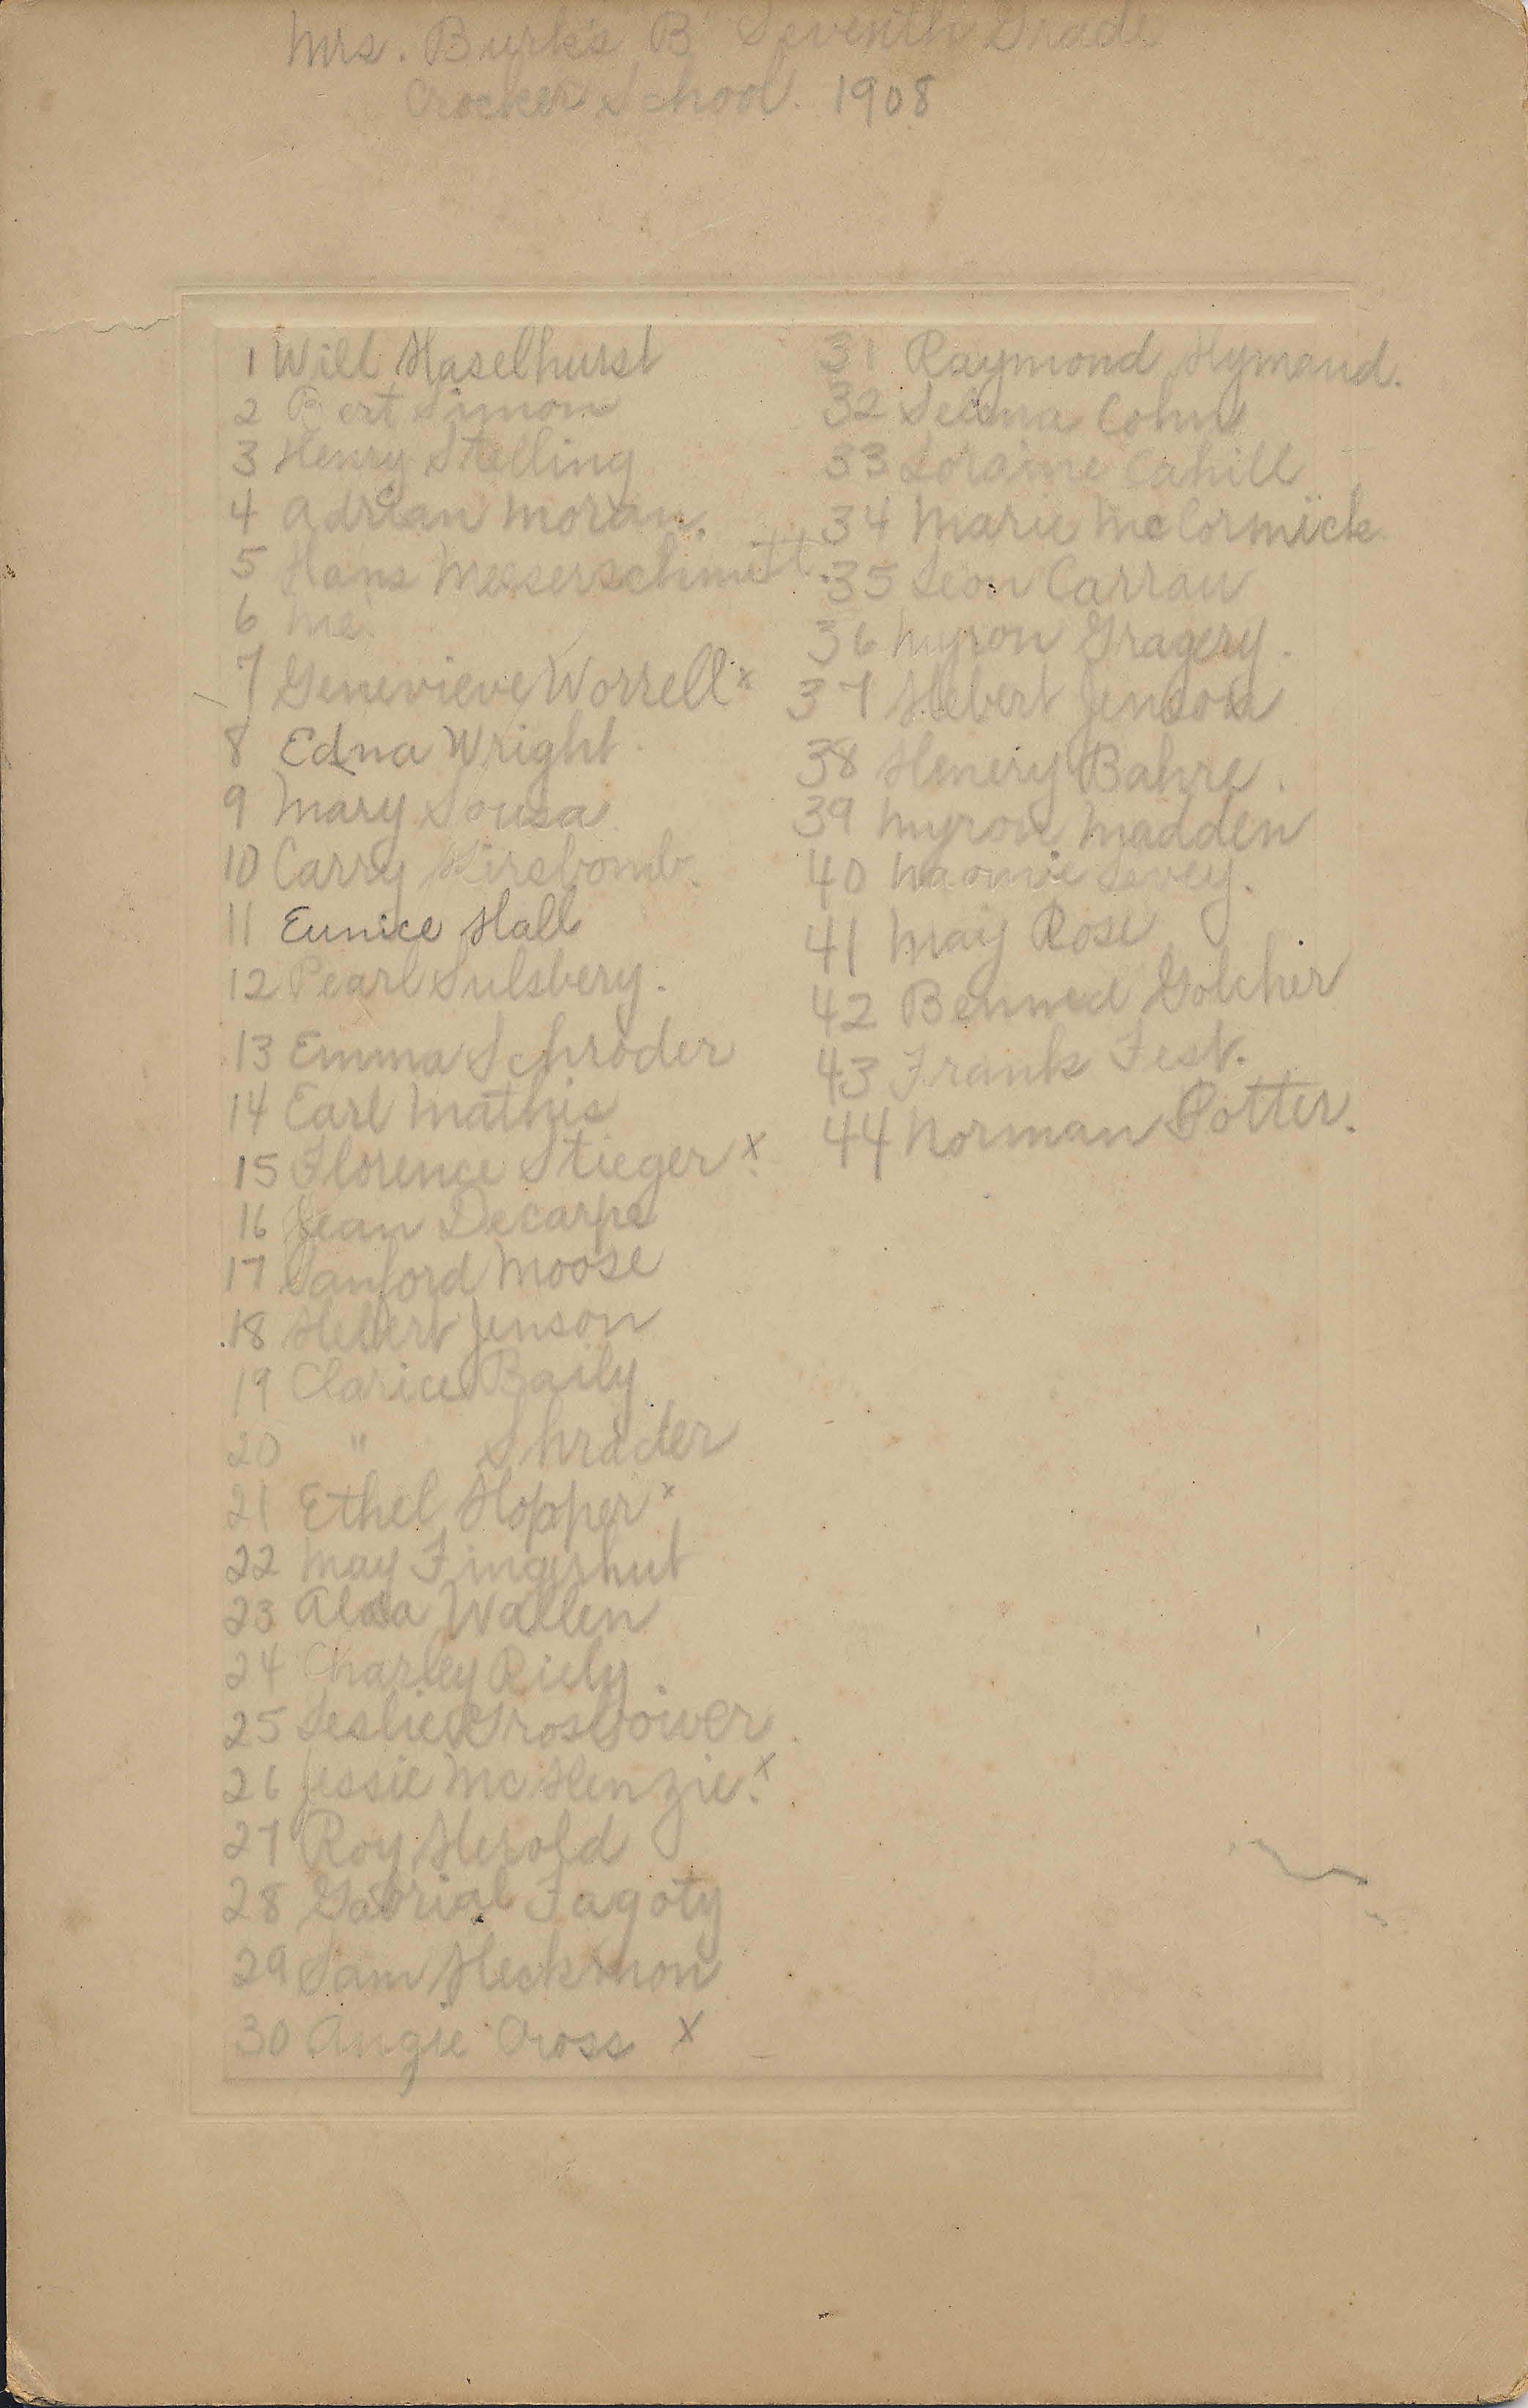 Mrs. Burk's B Seventh Grade
Crocker School. 1908
1 Will Haselhurst
2 Bert Simon
3 Henry Stelling
4 Adrian Moran.
5 Hans Messerschmitt.
6 Me.
7 Genevieve Worrell x
8 Edna Wright.
9 Mary Sousa
10 Carry Kirsbomb.
11 Eunice Hall
12 Pearl Sulsbery.
13 Emma Schroder
14 Earl Mathis
15 Florence Stieger x
16 Jean Decarpe
17 Sanford Moose
18 Hebert Jenson
19 Clarice Baily
20 " Shrader
21 Ethel Hopper x
22 May Fingerhut
23 Alda Wallen
24 Charley Riely.
25 Leslie Grosbower
26 Jessie McHenzie. x
27 Roy Herold
28 Gabrial Fagoty
29 Sam Heckmon
30 Angie Cross x
31 Raymond Hymand.
32 Selma Cohn
33 Loraine Cahill
34 Marie McCormick
35 Leon Carrau
36 Myron Gragery.
37 Hebert Jenson
38 Henery Bahre.
39 Myron Madden
40 Naomie Levey.
41 May Rose
42 Golcher
43 Frank Fest.
44 Norman Potter.